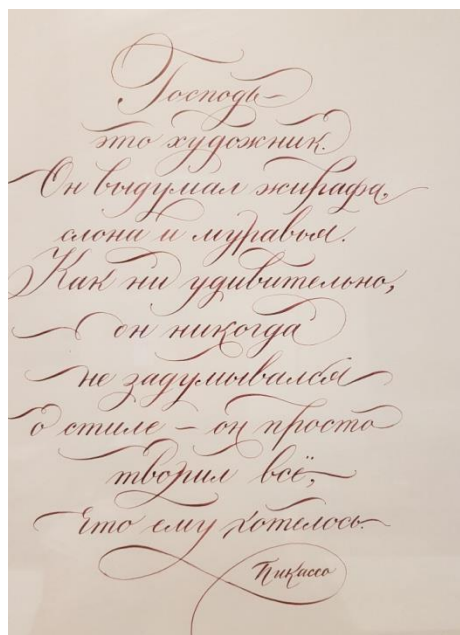 Господь —
это художник.
Он выдумал жирафа,
слона и муравья.
Как ни удивительно,
он никогда
не задумывался
о стиле — он просто
творил всё,
что ему хотелось.
Пикассо